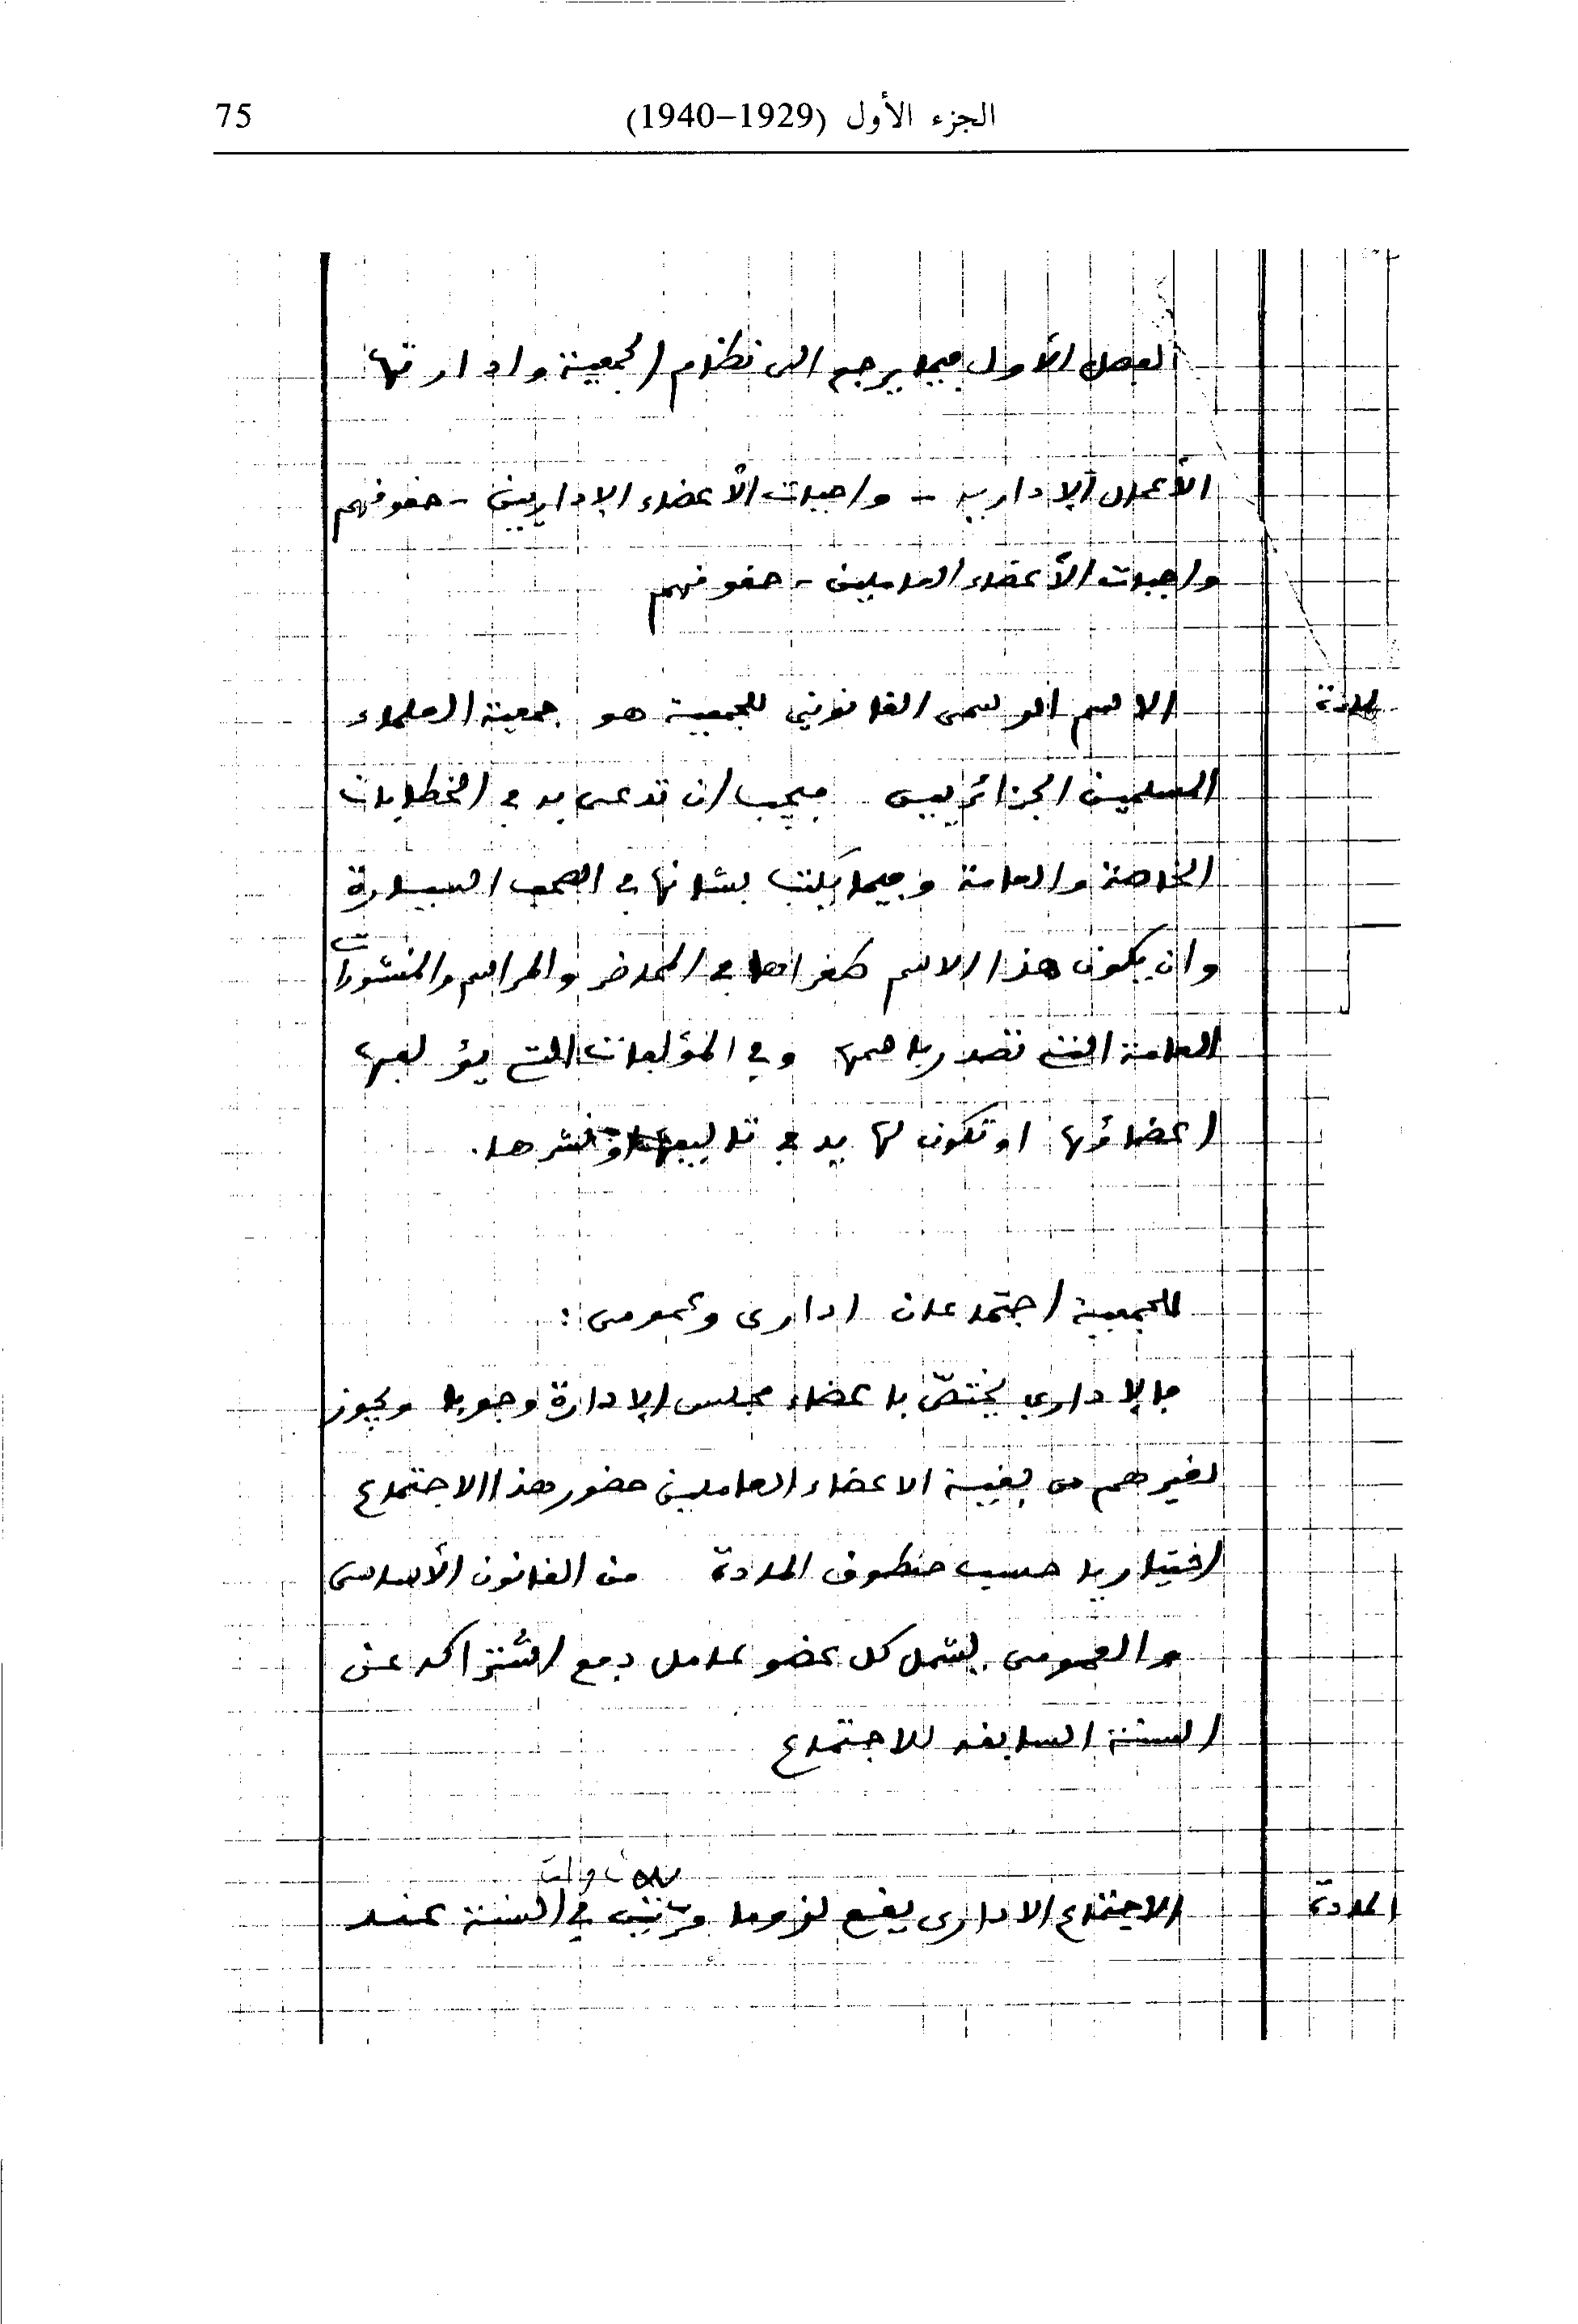 الجزء الأول (1929–1940) 75
الفصل الأول فيما يرجع الى نظام الجمعية وادارتها
الأعمال الإدارية - واجبات الأعضاء الإداريين - حقوقهم
واجبات الأعضاء العاملين - حقوقهم
المادة الاسم الرسمى القانوني للجمعية هو جمعية العلماء
المسلمين الجزائريين فيجب ان تدعى به في الخطابات
الخاصة والعامة وفيما يكتب بشأنها في الصحف السيارة
وان يكون هذا الاسم في المحاضر والمراسم والمنشورات
العامة التي تصدر باسمها وفي المؤلفات التي يؤلفها
اعضاؤها او تكون لها يد في تأليفها او نشرها.
للجمعية اجتماعان ادارى وعمومى:
فالإداري يختصّ باعضاء مجلس الإدارة وجوبا ويجوز
لغيرهم من بقية الاعضاء العاملين حضور هذا الاجتماع
اختياريا حسب منطوق المادة من القانون الأساسى
والعمومى يشمل كل عضو عامل دفع اشتراكه عن
السنة السابقة للاجتماع
المادة الاجتماع الادارى يقع لزوما مرتين في السنة عند